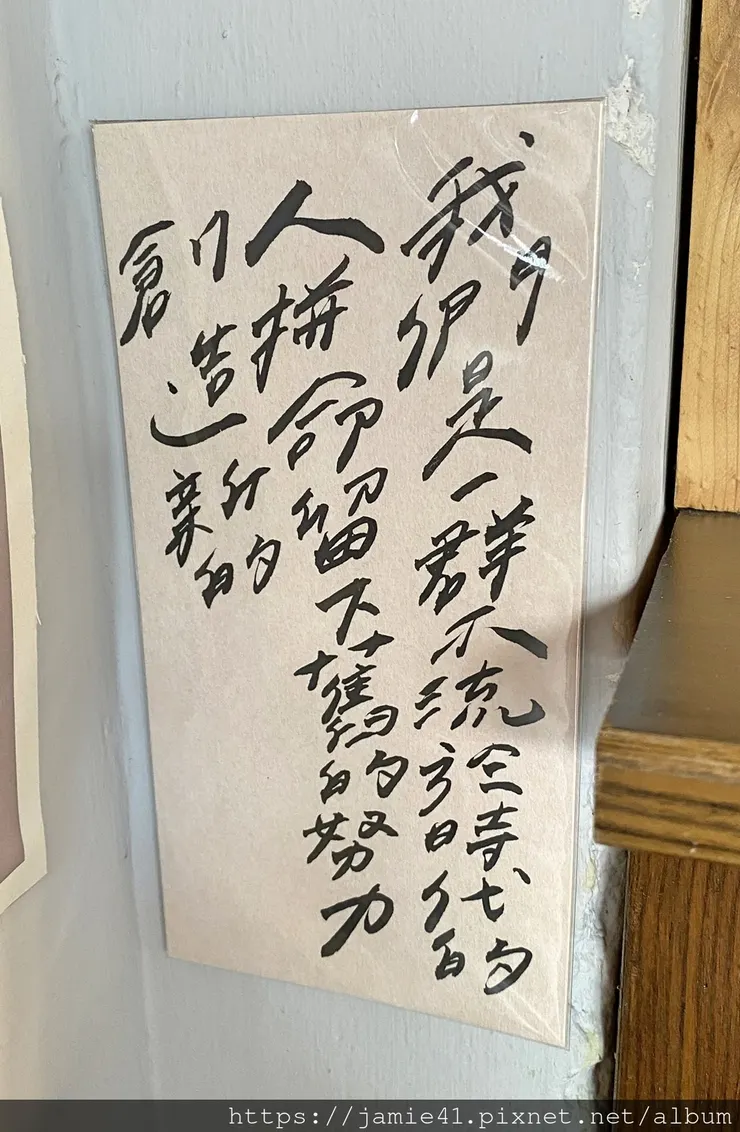 我們是一群不流於時代的
人拼命留下舊的努力
創造新的
https://jamie41.pixnet.net/album